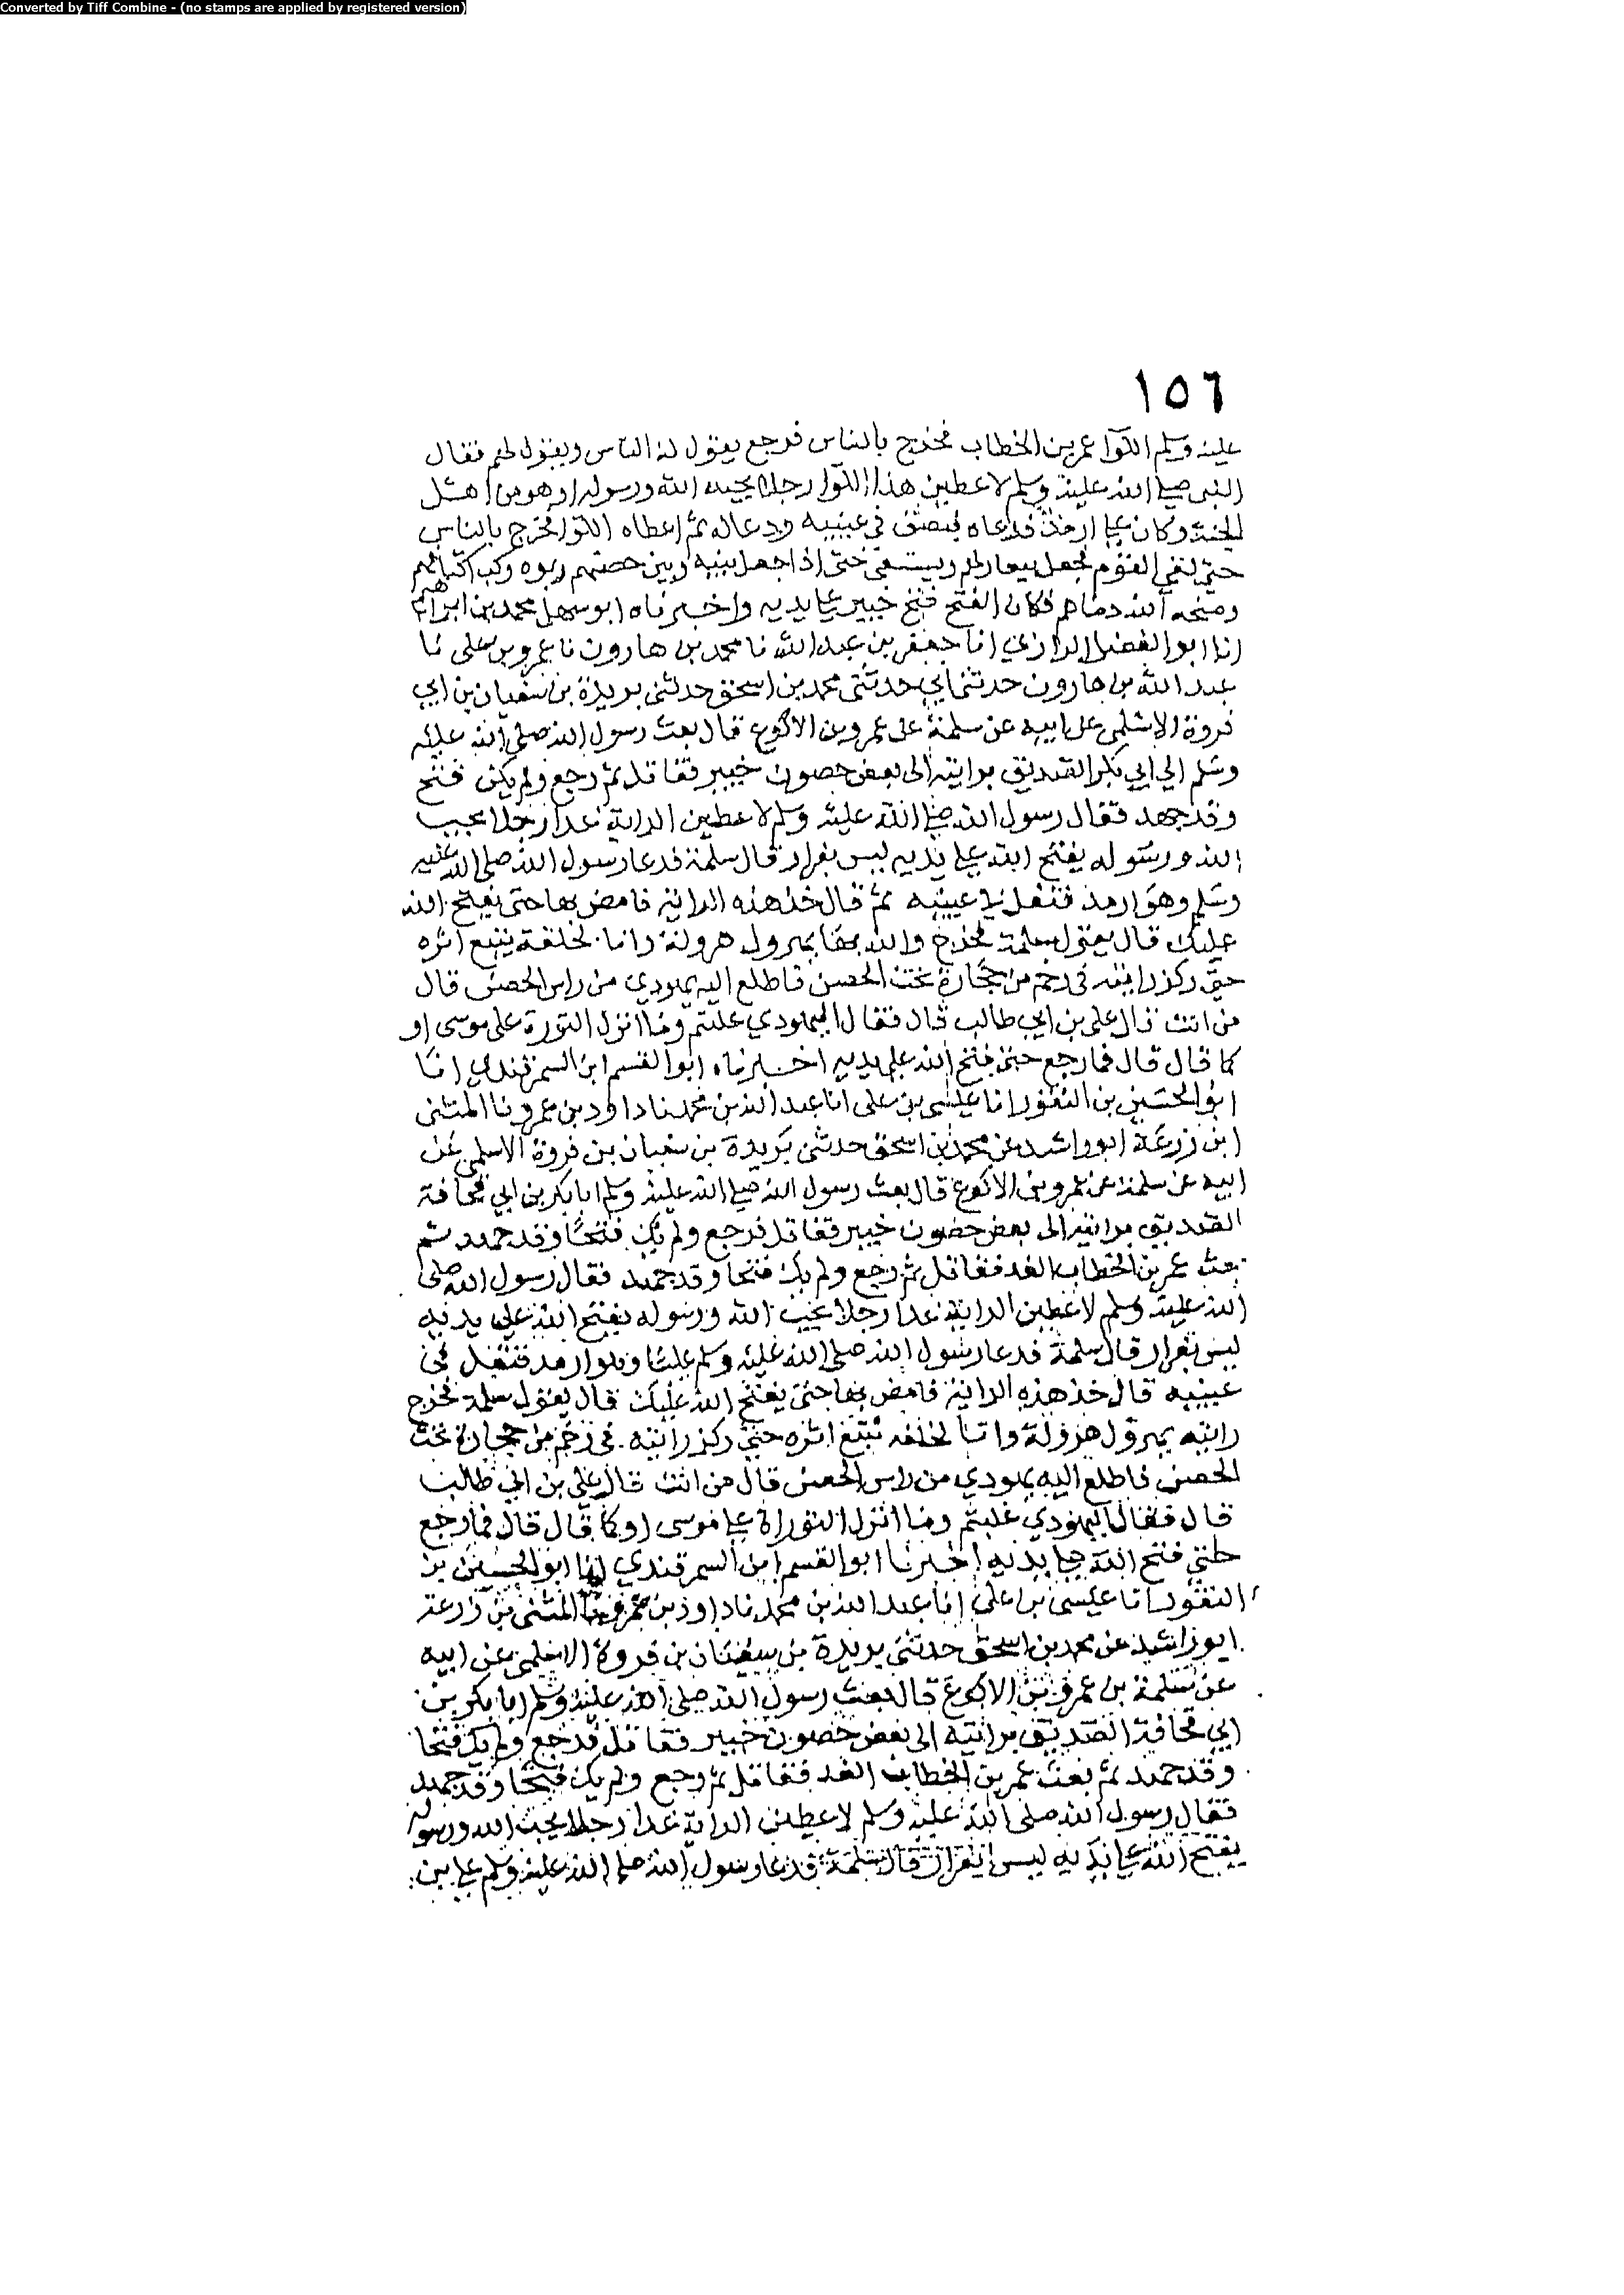 Converted by Tiff Combine - (no stamps are applied by registered version)
١٥٦
عليه وسلم اللوا عمر بن الخطاب فخرج بالناس فرجع يقول له الناس ويقول لهم فقال
النبي صلى الله عليه وسلم لاعطين هذا اللوا رجلا يحبه الله ورسوله او هو من اهل
الجنة وكان علي ارمد فدعاه فبصق في عينيه ودعا له ثم اعطاه اللوا فخرج بالناس
حتى لقي القوم فجعل حتى اذا جعل بينه وبين حصنهم ربوه
ومنحه الله دماهم فكان الفتح فتح خيبر على يديه واخبرناه ابو سهل محمد بن ابراهيم
انا ابو الفضل الرازي انا جعفر بن عبد الله نا محمد بن هارون نا عمرو بن على نا
عبد الله بن هارون حدثنا ابي حدثنى محمد بن اسحق حدثنى بريدة بن سفيان بن ابي
فروة الاسلمى عن ابيه عن سلمة على عمرو بن الاكوع قال بعث رسول الله صلى الله عليه
وسلم الي ابي بكر الصديق برايته الى بعض حصون خيبر فقاتل ثم رجع ولم يكن فتح
وقد جهد فقال رسول الله صلى الله عليه وسلم لاعطين الراية غدا رجلا يحب
الله ورسوله يفتح الله على يديه ليس بفرار قال سلمة فدعا رسول الله صلى الله عليه
وسلم وهو ارمد فتفل في عينيه ثم قال خذ هذه الراية فامض بها حتى يفتح الله
عليك قال يقول سلمة فخرج والله بها يهرول هرولة وانا لخلفه يتبع اثره
حتى ركز رايته في رجم من حجارة تحت الحصن فاطلع اليه يهودي من راس الحصن قال
من انت قال على بن ابي طالب قال فقال اليهودي علبتم وما انزل التورة على موسى او
كما قال قال فما رجع حتى فتح الله على يديه اخبرناه ابو القسم ابن السمرقندي انا
ابو الحسين بن النقور انا عيسى بن على انا عبد الله بن محمد نا داود بن عمرو نا المثنى
ابن زرعة ابو راشد عن محمد بن اسحق حدثنى بريدة بن سفيان بن فروة الاسلمى عن
ابيه عن سلمة عن عمرو بن الاكوع قال بعث رسول الله صلى الله عليه وسلم ابا بكر بن ابي قحافة
الصديق برايته الى بعض حصون خيبر فقاتل فرجع ولم يك فتحا وقد جهد ثم
بعث عمر بن الخطاب الغد فقاتل ثم رجع ولم يك فتحا وقد جهد فقال رسول الله صلى
الله عليه وسلم لاعطين الراية غدا رجلا يحب الله ورسوله يفتح الله على يديه
ليس بفرار قال سلمة فدعا رسول الله صلى الله عليه وسلم عليا وهو ارمد فتفل في
عينيه قال خذ هذه الراية فامض بها حتى يفتح الله عليك قال يقول سلمة فخرج
رايته يهرول هرولة وانا لخلفه نتبع اثره حتى ركز رايته في رجم من حجارة تحت
الحصن فاطلع اليه يهودي من راس الحصن قال من انت قال على بن ابي طالب
قال فقال اليهودي غلبتم وما انزل التوراة على موسى او كما قال قال فما رجع
حتي فتح الله على يديه اخبرنا ابو القسم ابن السمرقندي انا ابو الحسين بن
النقور انا عيسى بن على انا عبد الله بن محمد نا داود بن عمرو نا المثنى بن زرعة
ابو راشد عن محمد بن اسحق حدثنى بريدة بن سفيان بن فروة الاسلمى عن ابيه
عن سلمة بن عمرو بن الاكوع قال بعث رسول الله صلى الله عليه وسلم ابا بكر بن
ابي قحافة الصديق برايته الى بعض حصون خيبر فقاتل فرجع ولم يك فتحا
وقد جهد ثم بعث عمر بن الخطاب الغد فقاتل ثم رجع ولم يك فتحا وقد جهد
فقال رسول الله صلى الله عليه وسلم لاعطين الراية غدا رجلا يحب الله ورسوله
يفتح الله على يديه ليس بفرار قال سلمة فدعا رسول الله صلى الله عليه وسلم علي بن